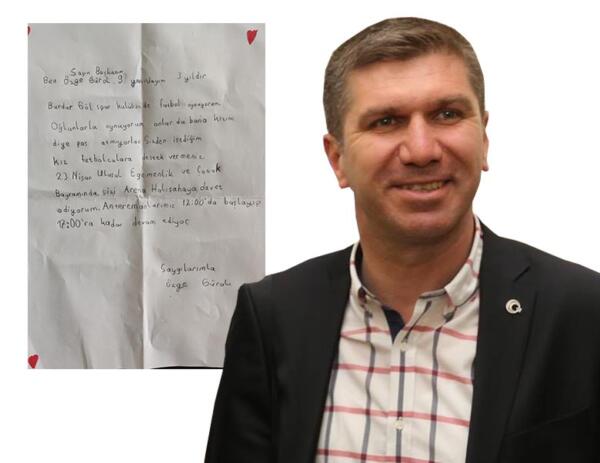 Sayın Başkanım
Ben Özge Gürol 9 yaşındayım 3 yıldır
Burdur Göl spor kulübünde futbol oynuyorum
Oğlanlarla oynuyorum onlar da bana kızım
diye pas atmıyorlar. Sizden istediğim
kız futbolculara destek vermeniz
23 Nisan Ulusal Egemenlik ve Çocuk
Bayramında sizi Arena Halısahaya davet
ediyorum. Antremanlarımız 12:00'da başlayıp
17:00'ra kadar devam ediyor.
Saygılarımla
özge Gürol